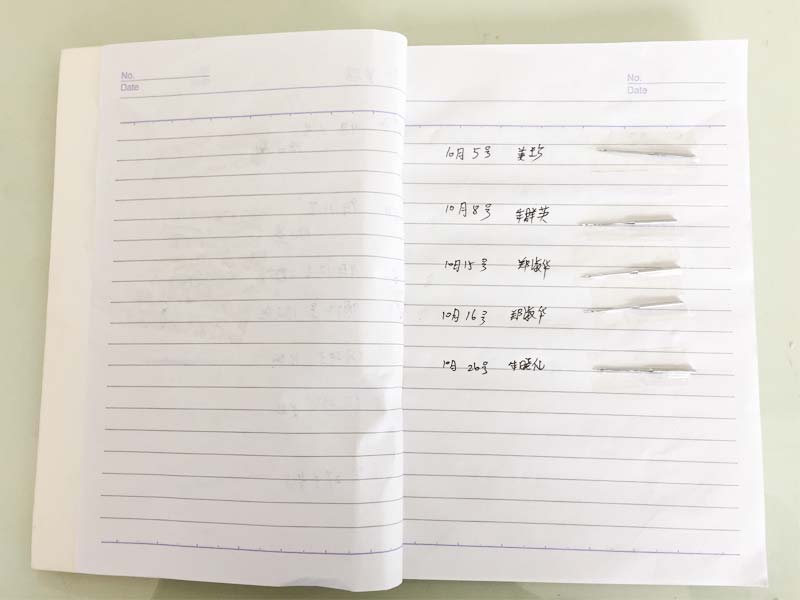 No.
Date
No.
Date
10月5号 黄珍
10月8号 牟群英
10月15号 郑淑华
10月16号 郑淑华
10月26号